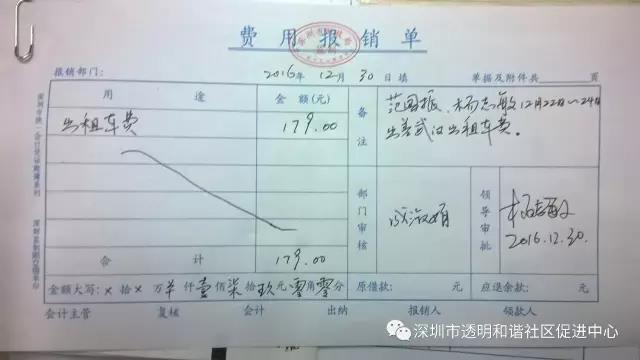 费用报销单
报销部门： 2016年12月30日填 单据及附件共 页
用途 金额(元) 备注
出租车费 179.00
范国振、杨志敏12月22日～24日
出差武汉出租车费。
合计 179.00
部门审核
领导审批
2016.12.30.
金额大写：× 拾 × 万 羊 仟 壹 佰 柒 拾 玖 元 零 角 零 分 原借款： 元 应退余款： 元
会计主管 复核 会计 出纳 报销人 领款人
深圳市透明和谐社区促进中心